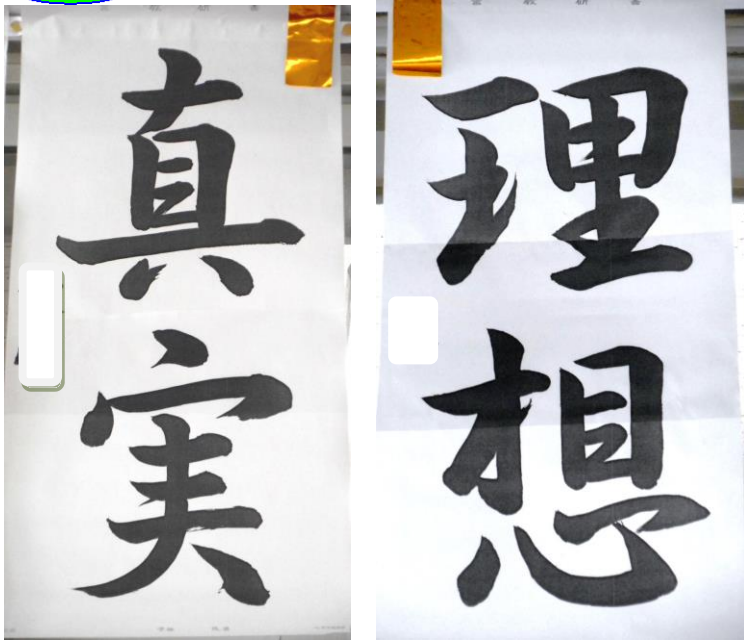 真実
理想